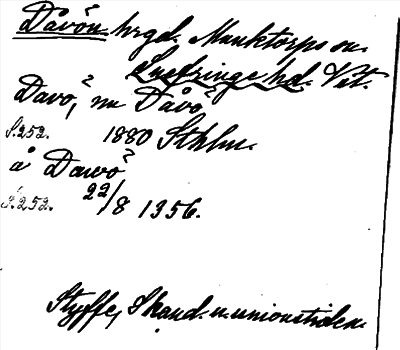 Dåvön hrgd. Munktorps sn.
Snefringe hd. Vst.
Davö, nu Dåvö
S. 252. 1880 Sthlm.
å Dawö
S. 252. 22/8 1356.
Styffe, Skand. u. unionstiden.